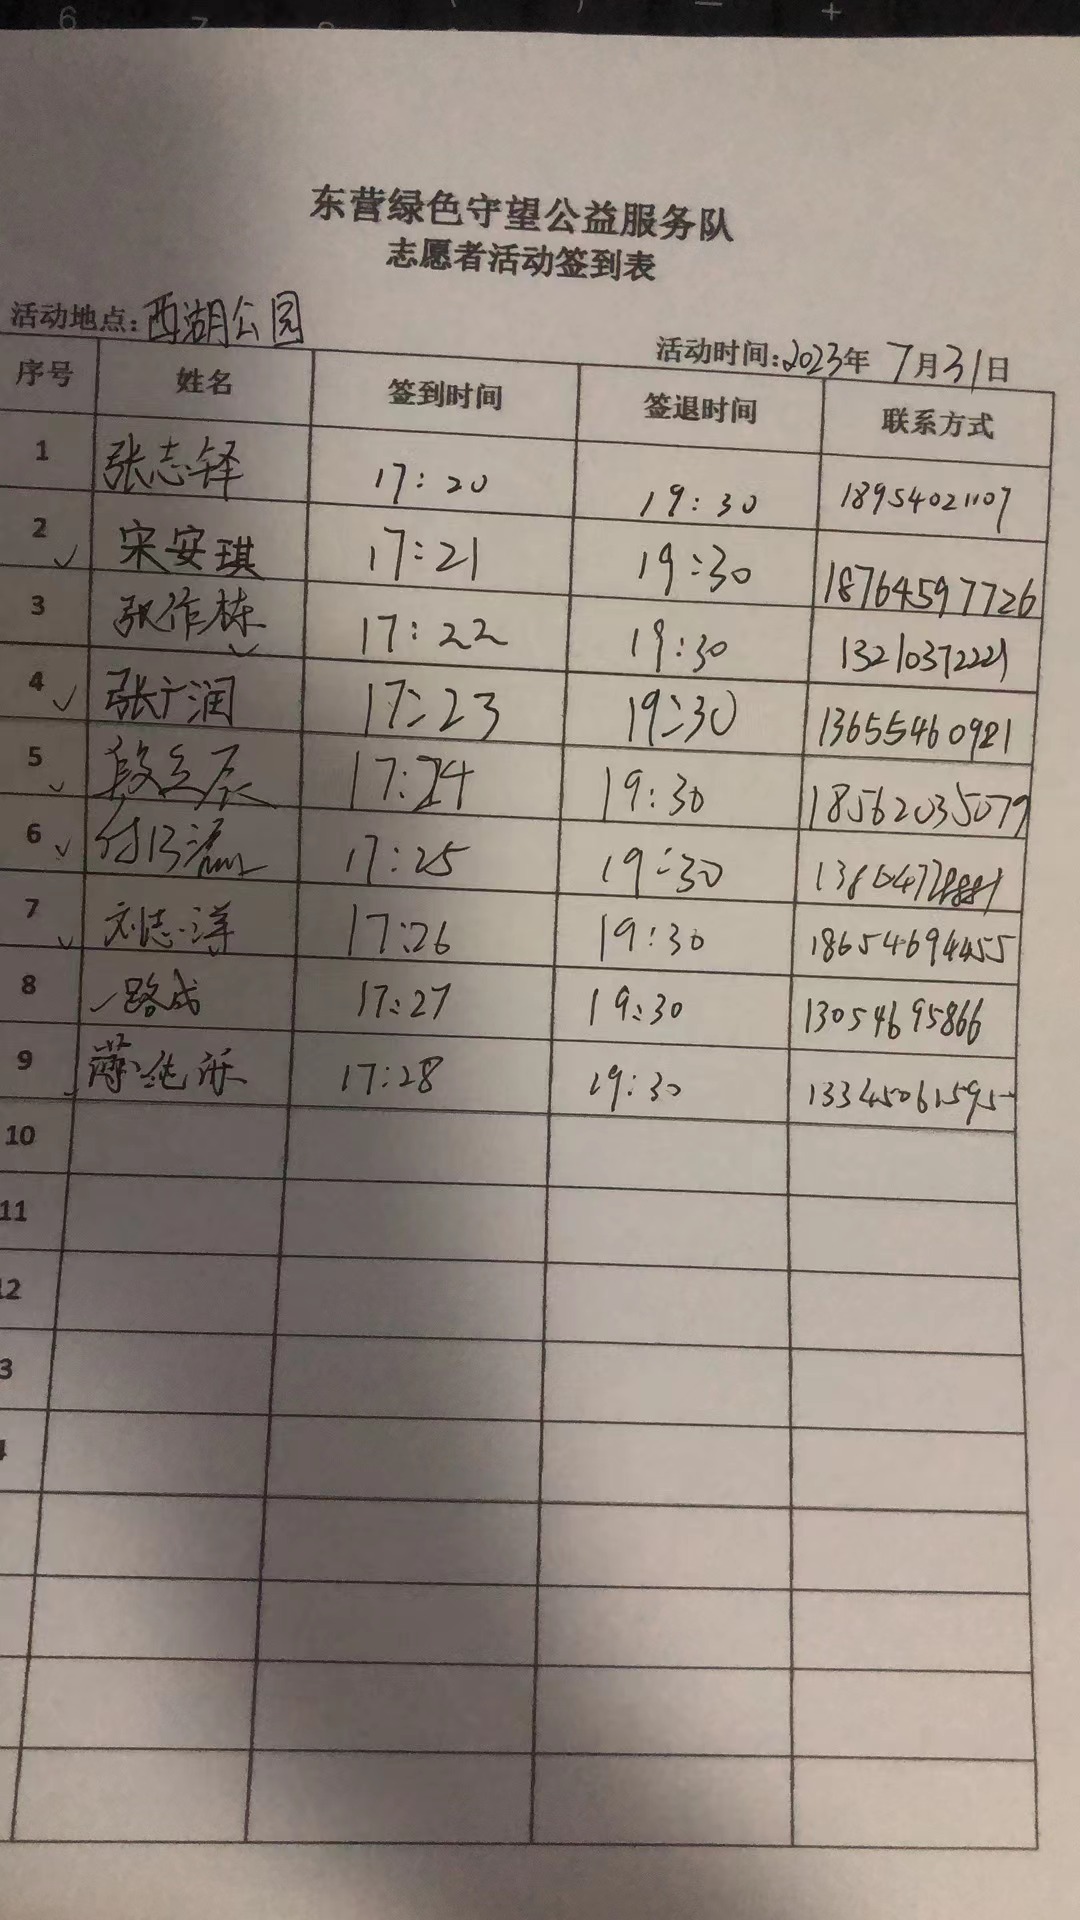 东营绿色守望公益服务队
志愿者活动签到表
活动地点:西湖公园
活动时间:2023年 7月31日
序号 姓名 签到时间 签退时间 联系方式
1 张志铎 17:20 19:30 18954021107
2 宋安琪 17:21 19:30 18764597726
3 张作栋 17:22 19:30 13210372221
4 张广润 17:23 19:30 13655460921
5 17:24 19:30 18562035079
6 17:25 19:30
7 刘志洋 17:26 19:30 18654694455
8 路成 17:27 19:30 13054695866
9 17:28 19:30 13345061595
10
11
12
3